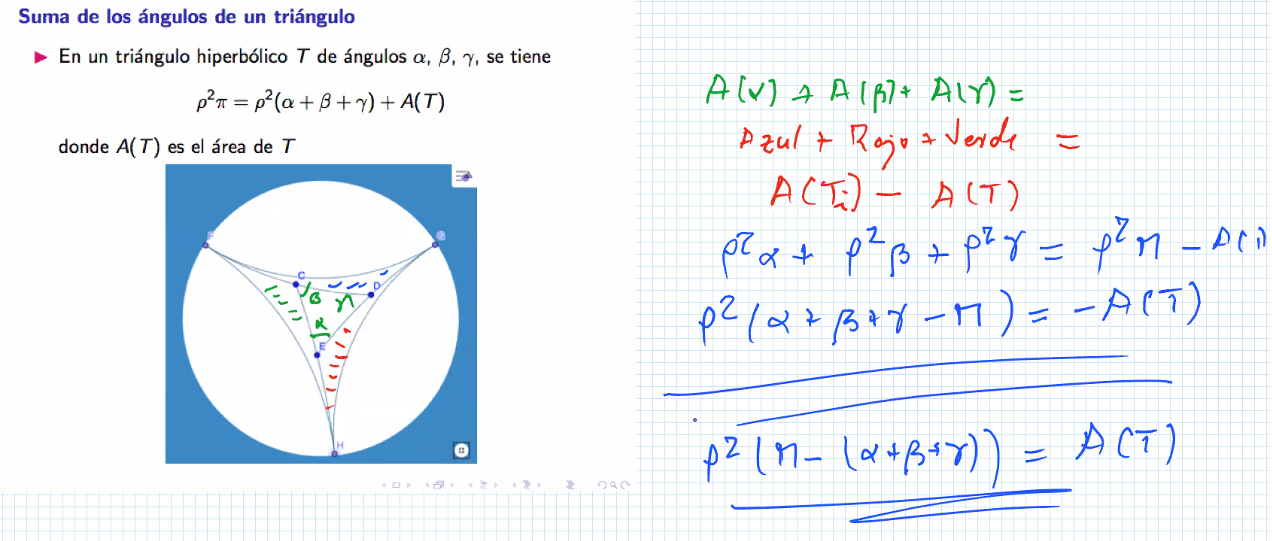 Suma de los ángulos de un triángulo
▶ En un triángulo hiperbólico T de ángulos α, β, γ, se tiene
ρ²π = ρ²(α + β + γ) + A(T)
donde A(T) es el área de T
F
G
C
D
β
γ
α
E
H
A(α) + A(β) + A(γ) =
Azul + Rojo + Verde =
A(Ti) − A(T)
ρ²α + ρ²β + ρ²γ = ρ²π − A(T)
ρ²(α + β + γ − π) = −A(T)
ρ²(π − (α + β + γ)) = A(T)